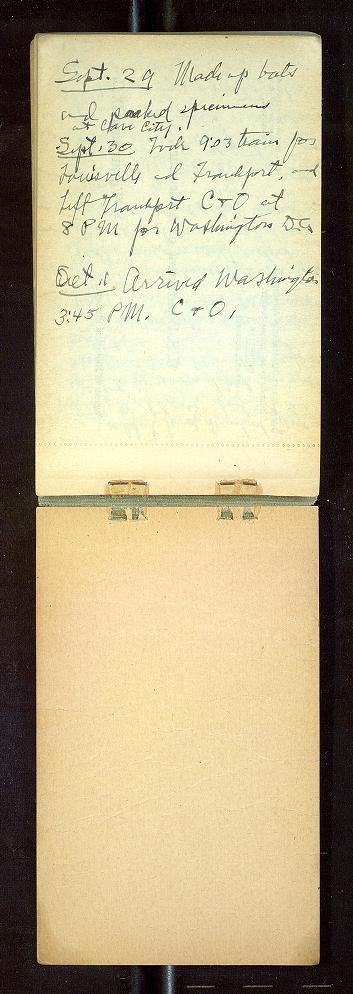 Sept. 29 Made up bats
and packed specimens
at Cave City.
Sept. 30 Took 9:03 train for
Louisville and Frankfort, and
left Frankfort C+O at
8 PM for Washington D.C.
Oct. 1. Arrived Washington
3:45 PM. C+O.